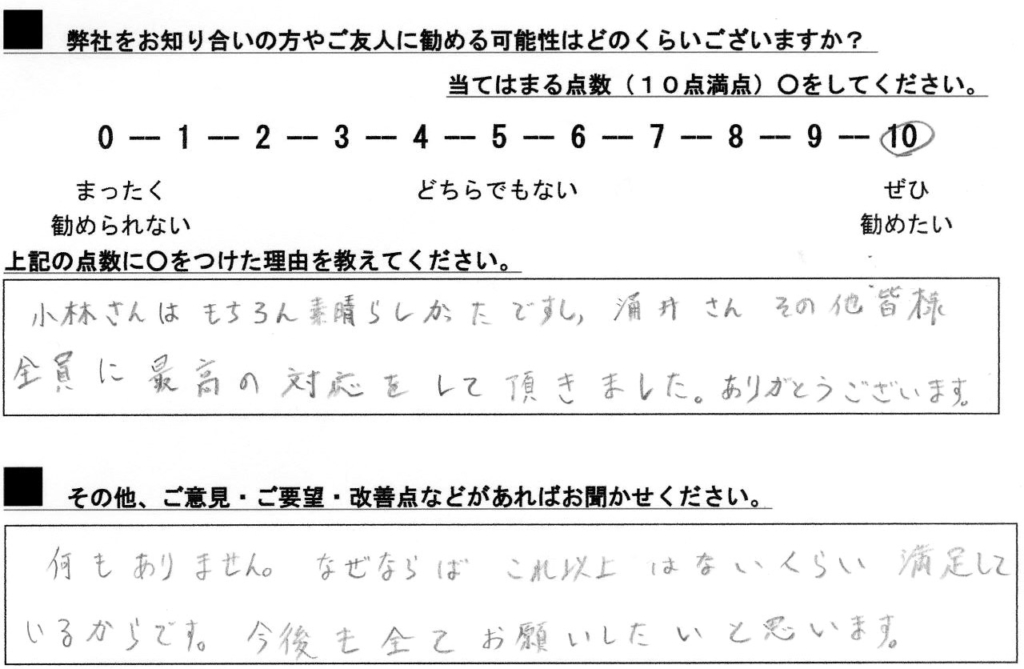 ■ 弊社をお知り合いの方やご友人に勧める可能性はどのくらいございますか？
当てはまる点数（１０点満点）〇をしてください。
0 ― 1 ― 2 ― 3 ― 4 ― 5 ― 6 ― 7 ― 8 ― 9 ― 10
まったく どちらでもない ぜひ
勧められない 勧めたい
上記の点数に〇をつけた理由を教えてください。
小林さんはもちろん素晴らしかたですし、涌井さん その他皆様
全員に最高の対応をして頂きました。ありがとうございます。
■ その他、ご意見・ご要望・改善点などがあればお聞かせください。
何もありません。なぜならば これ以上 はないくらい 満足して
いるからです。今後も全てお願いしたいと思います。